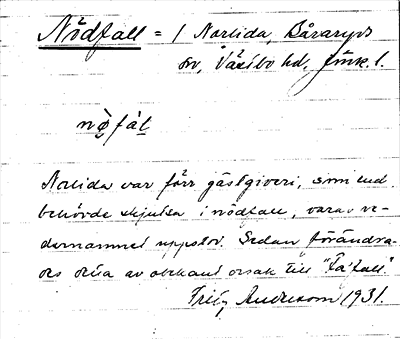 Nödfall = 1 Norlida, Båraryds
sn, Västbo hd, Jönk. l.
nø̀fál
Norlida var förr gästgiveri, som end.
behövde skjutsa i nödfall, varav ve-
dernamnet uppstod. Sedan förändra-
des detta av obekant orsak till "Få'fall."
Fritz Andersson 1931.